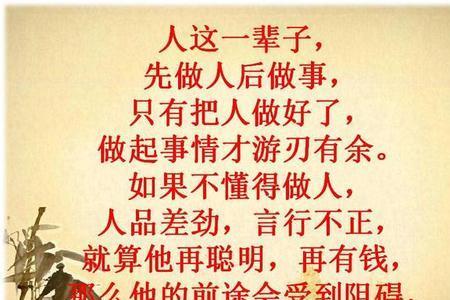 人这一辈子，
先做人后做事，
只有把人做好了，
做起事情才游刃有余。
如果不懂得做人，
人品差劲，言行不正，
就算他再聪明，再有钱，
那么他的前途会受到阻碍，